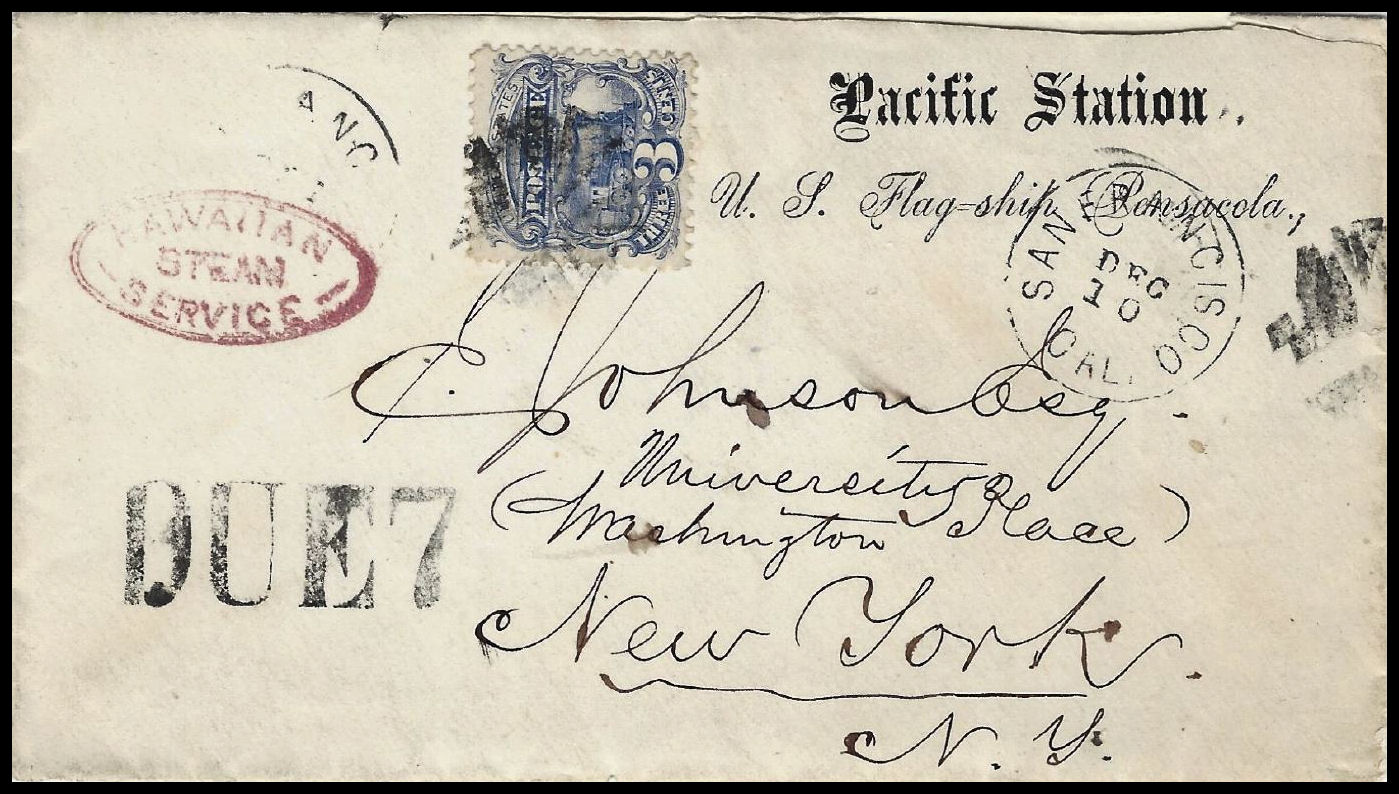 Pacific Station.
U. S. Flag-ship Pensacola,
3
POSTAGE
SAN FRANCISCO
DEC
10
CAL.
HAWAIIAN
STEAM
SERVICE
DUE 7
Johnson Esq.
University Place
(Washington Place)
New York.
N. Y.